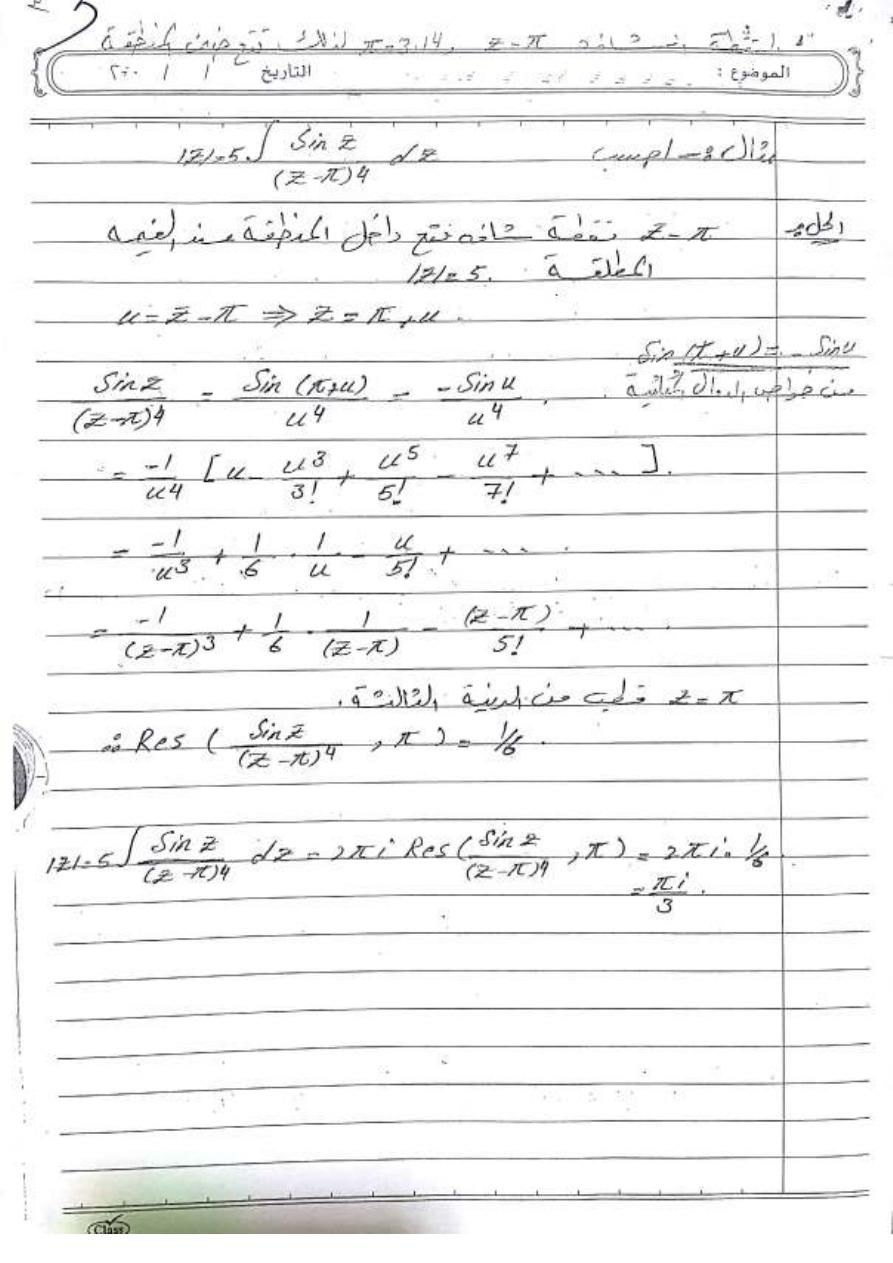 π=3.14 لذلك تقع ضمن المنطقة
الموضوع :
التاريخ / / ٢٠٠
مثال :- احسب |z|=5 ∫ Sin z / (z-π)4 dz
الحل :- z-π نقطة شاذه تقع داخل المنطقة عند القيمه
المطلقة |z|=5.
u = z-π ⇒ z = π+u .
Sin (π+u) = - Sin u
من خواص الدوال المثلثية
Sin z / (z-π)4 = Sin (π+u) / u4 = - Sin u / u4 .
= -1/u4 [ u - u3/3! + u5/5! - u7/7! + .... ].
= -1/u3 + 1/6 . 1/u - u/5! + .... .
= -1/(z-π)3 + 1/6 . 1/(z-π) - (z-π)/5! + .... .
z=π قطب من الرتبة الثالثة.
∴ Res ( Sin z / (z-π)4 , π ) = 1/6 .
|z|=5 ∫ Sin z / (z-π)4 dz = 2πi Res ( Sin z / (z-π)4 , π ) = 2πi . 1/6
= πi/3 .
Class